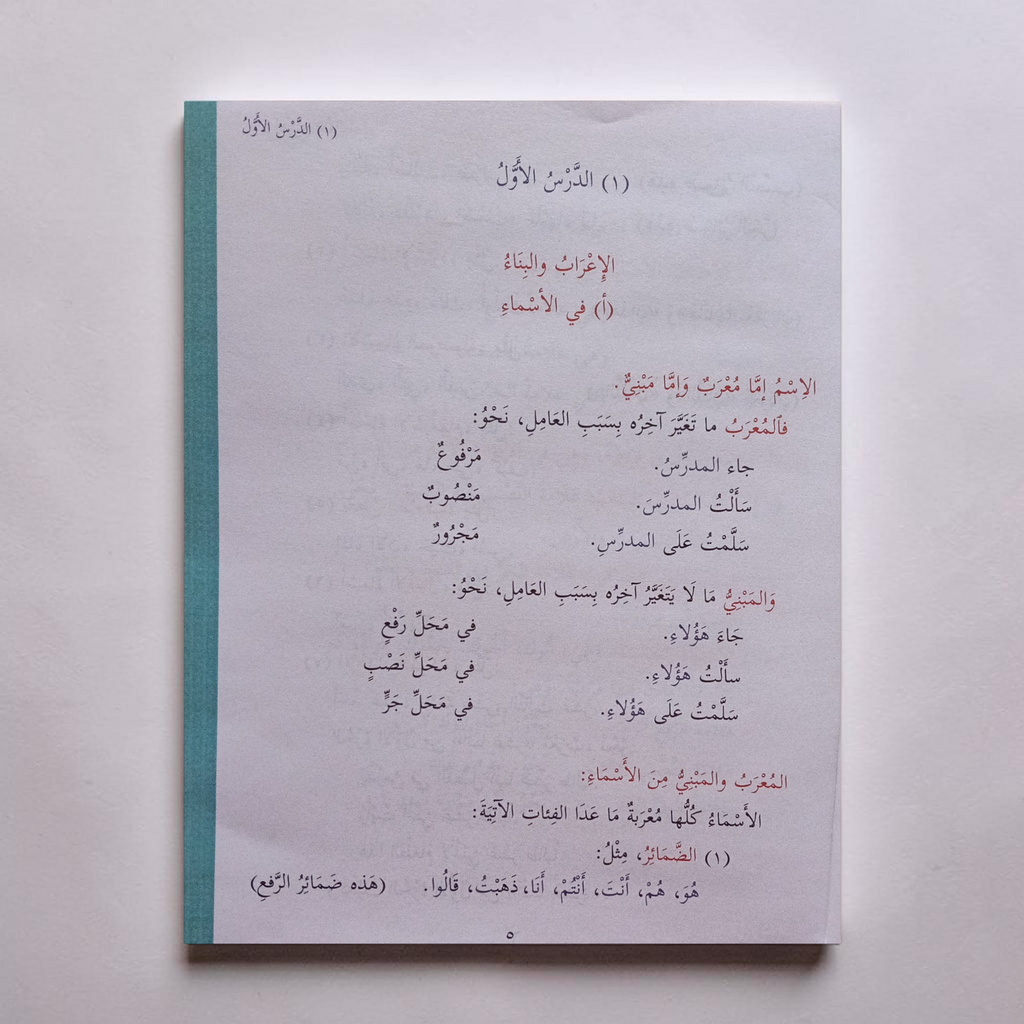 (١) الدَّرْسُ الأَوَّلُ
(١) الدَّرْسُ الأَوَّلُ
الإِعْرَابُ والبِنَاءُ
(أ) في الأسْماءِ
الاِسْمُ إمَّا مُعْرَبٌ وَإمَّا مَبْنِيٌّ.
فٱلمُعْرَبُ ما تَغَيَّرَ آخِرُه بِسَبَبِ العَامِلِ، نَحْوُ:
جاء المدرِّسُ. مَرْفُوعٌ
سَأَلْتُ المدرِّسَ. مَنْصُوبٌ
سَلَّمْتُ عَلَى المدرِّسِ. مَجْرُورٌ
وَالمَبْنِيُّ مَا لَا يَتَغَيَّرُ آخِرُه بِسَبَبِ العَامِلِ، نَحْوُ:
جَاءَ هَؤُلاءِ. في مَحَلِّ رَفْعٍ
سألْتُ هَؤُلاءِ. في مَحَلِّ نَصْبٍ
سَلَّمْتُ عَلَى هَؤُلاءِ. في مَحَلِّ جَرٍّ
المُعْرَبُ والمَبْنِيُّ مِنَ الأَسْمَاءِ:
الأَسْمَاءُ كُلُّها مُعْرَبةٌ مَا عَدَا الفِئاتِ الآتِيَةَ:
(١) الضَّمَائِرُ، مِثْلُ:
هُوَ، هُمْ، أَنْتَ، أَنْتُمْ، أَنَا، ذَهَبْتُ، قَالُوا. (هَذه ضَمَائِرُ الرَّفعِ)
٥